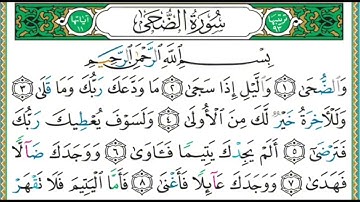 ترتيبها ٩٣ سُورَةُ الضُّحَىٰ آياتها ١١
بِسْمِ اللَّهِ الرَّحْمَٰنِ الرَّحِيمِ
وَالضُّحَىٰ ١ وَاللَّيْلِ إِذَا سَجَىٰ ٢ مَا وَدَّعَكَ رَبُّكَ وَمَا قَلَىٰ ٣
وَلَلْآخِرَةُ خَيْرٌ لَّكَ مِنَ الْأُولَىٰ ٤ وَلَسَوْفَ يُعْطِيكَ رَبُّكَ
فَتَرْضَىٰ ٥ أَلَمْ يَجِدْكَ يَتِيمًا فَـَٔاوَىٰ ٦ وَوَجَدَكَ ضَآلًّا
فَهَدَىٰ ٧ وَوَجَدَكَ عَآئِلًا فَأَغْنَىٰ ٨ فَأَمَّا الْيَتِيمَ فَلَا تَقْهَرْ